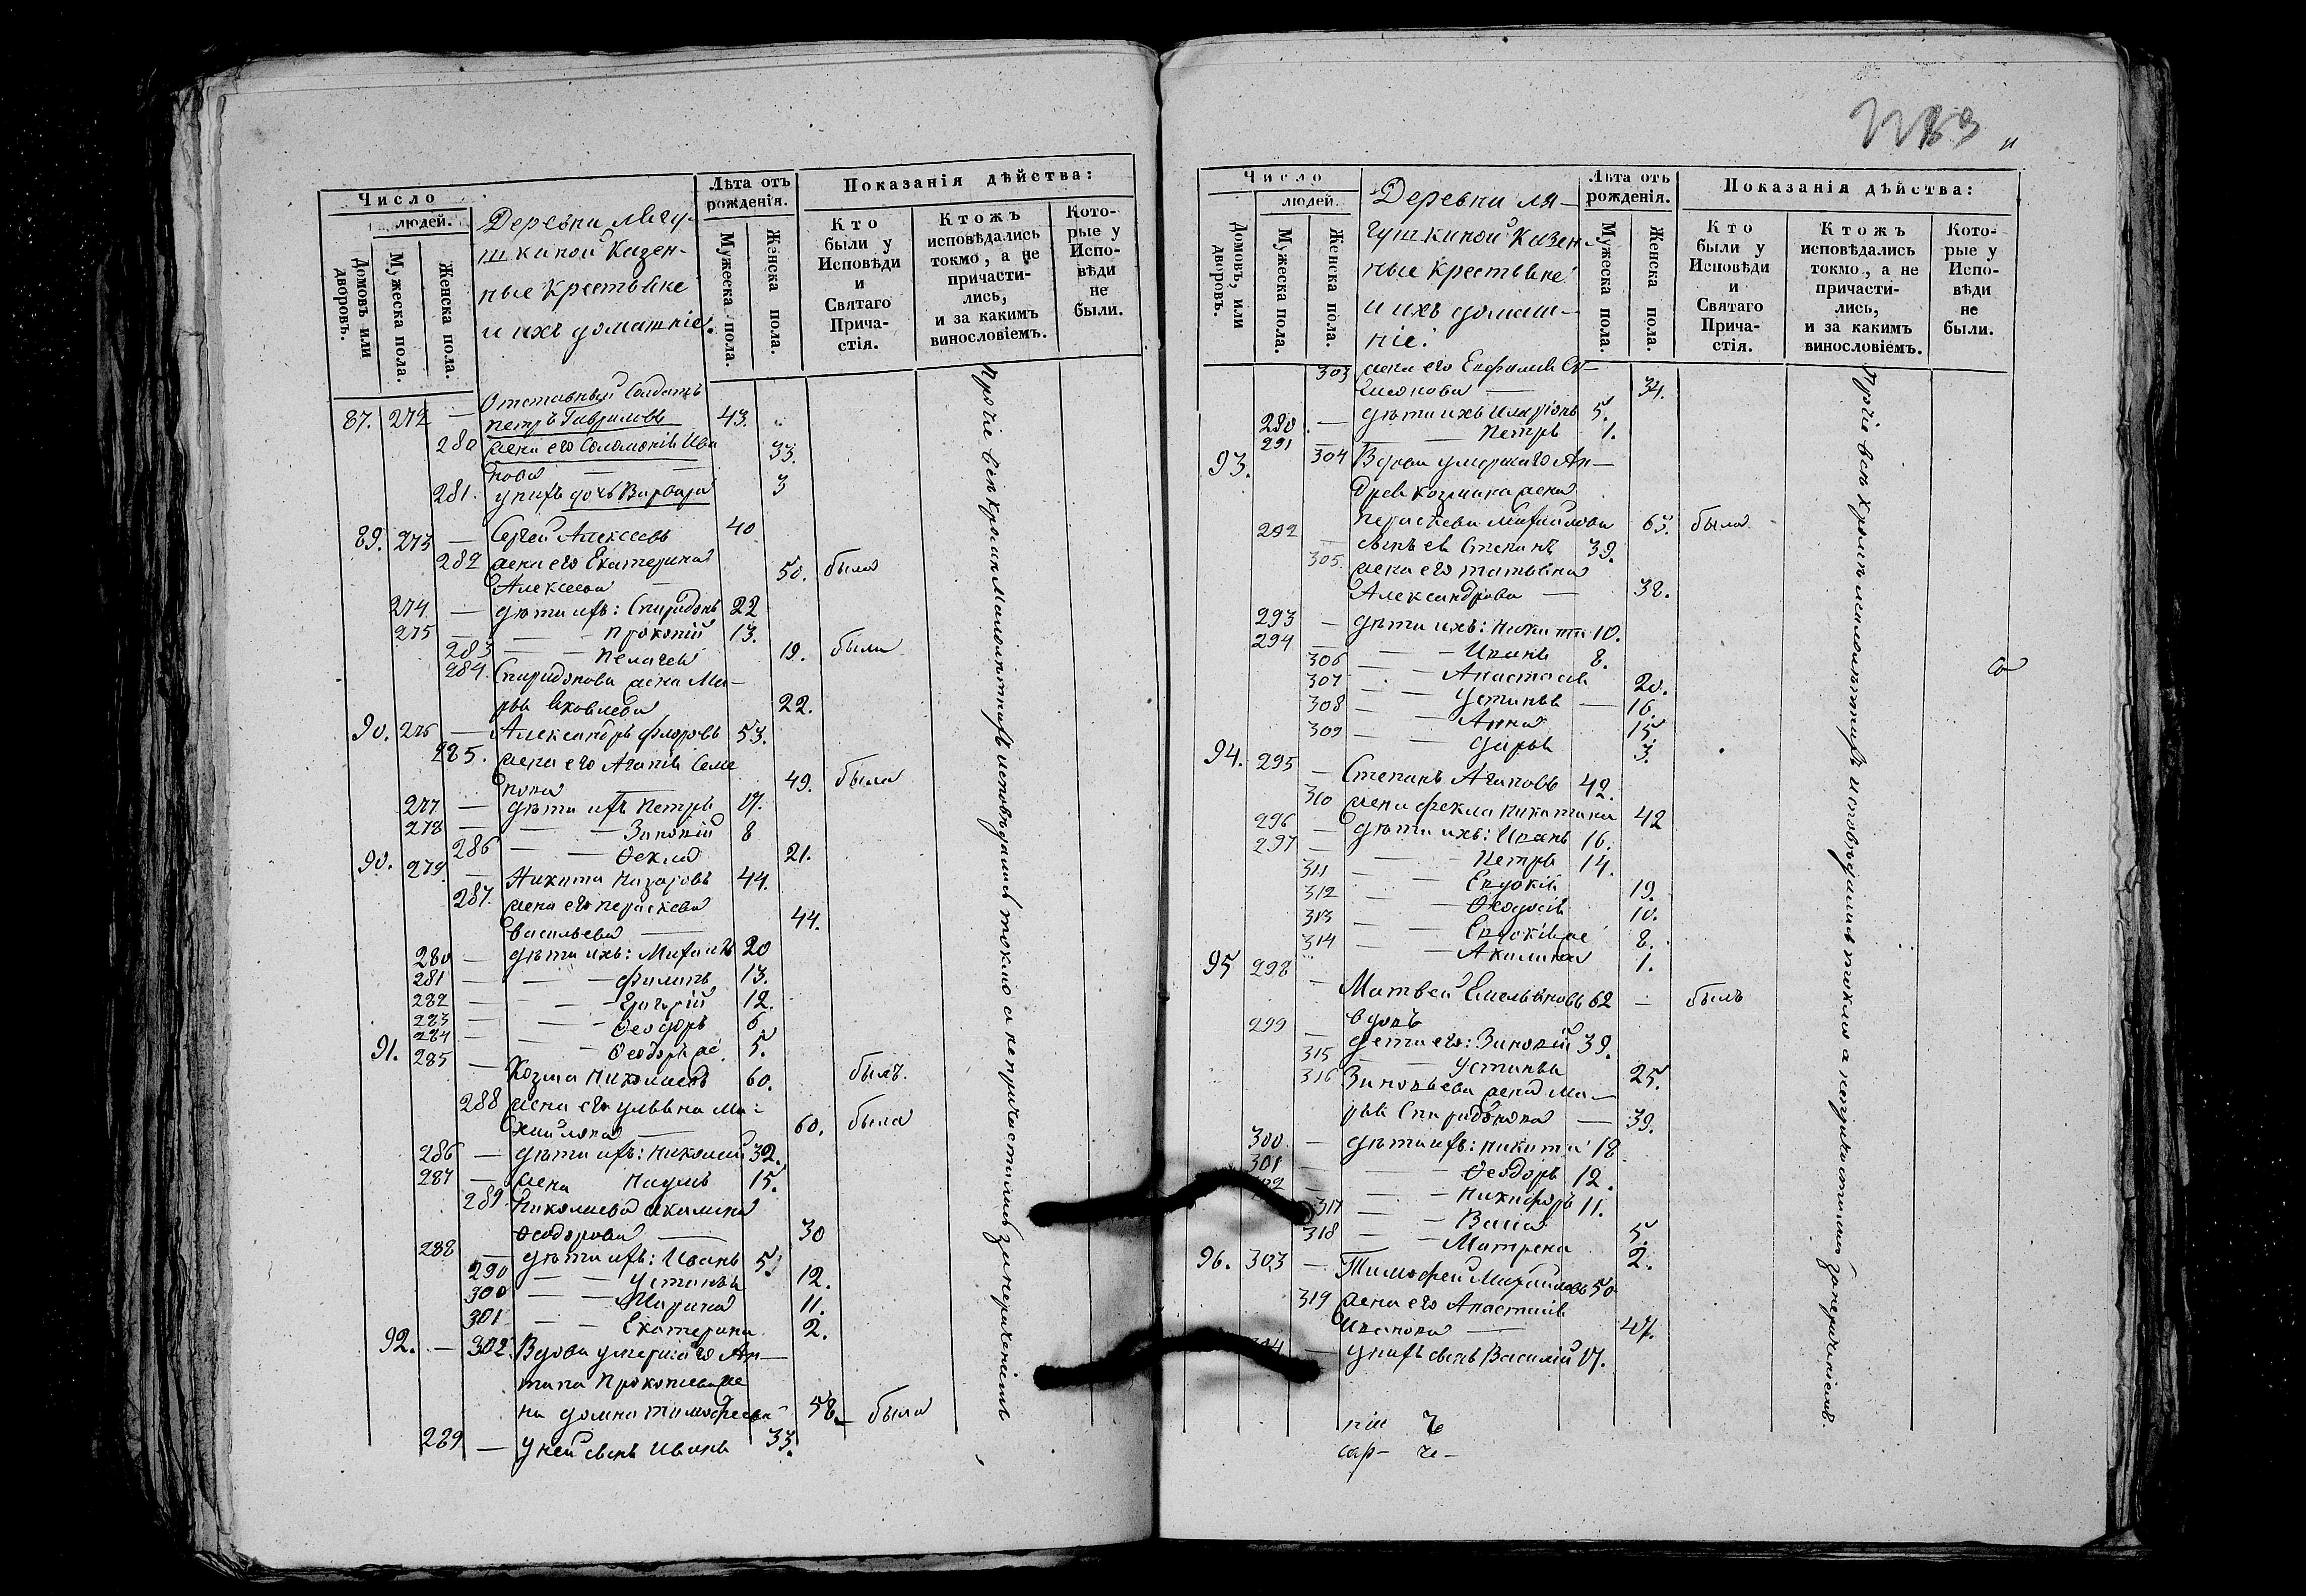 Число
людей.
Домовъ или дворовъ.
Мужеска пола.
Женска пола.
Деревни Лягу-
шкиной Казен-
ные Крестьяне
и ихъ домашніе.
Лѣта отъ
рожденія.
Мужеска пола.
Женска пола.
Показанія дѣйства:
Кто
были у
Исповѣди
и
Святаго
Прича-
стія.
Ктожъ
исповѣдались
токмо, а не
причасти-
лись,
и за какимъ
винословіемъ.
Кото-
рые у
Испо-
вѣди
не
были.
Отставный Солдатъ
87. 272 — Петръ Гавриловъ 43.
280 жена его Соломонія Ива
нова — — 33.
281. у нихъ дочь Варвара 3
89. 273 — Сергей Алексеевъ 40
282 жена его Екатерина
Алексеева — 50. была
274. — дѣти ихъ: Спиридонъ 22
275 — — — Прокопій 13.
283 — — Пелагея 19. была
284. Спиридонова жена Ма-
рья Яковлева 22.
90. 276 — Александръ Флоровъ 53.
285. жена его Агапія Семе
нова 49. была
277 — дѣти ихъ Петръ 17.
278 — — — Зиновій 8
286 — — Ѳекла 21.
90. 279. — Никита Назаровъ 44.
287. жена его Параскева
Васильева — 44.
280 — дѣти ихъ: Михаилъ 20
281 — — — Филипъ 13.
282 — — — Григорій 12.
283 — — — Ѳеодоръ 6
284 — — Ѳеодоръ же 5.
91. 285 — Козма Николаевъ 60. былъ.
288 жена его Ульяна Ми-
хайлова — 60. была
286 — дѣти ихъ: Николай 32.
287 — Наумъ 15.
жена
289. Николаева Акилина
Ѳеодорова — 30
288 — дѣти ихъ: Иванъ 5.
290 — — Устинья 12.
300 — — Марина 11.
301 — — Екатерина 2.
92. — 302. Вдова умершаго Ан-
типа Прокопьева же
на Домна Тимофеева 58. — была
289 — у ней сынъ Иванъ 33.
Прочіе всѣ кромѣ малолѣтнихъ исповѣдались токмо а непричастились за нераченіемъ
Число
людей.
Домовъ, или дворовъ.
Мужеска пола.
Женска пола.
Деревни Ля-
гушкиной Казен-
ные Крестьяне
и ихъ домаш-
ніе.
Лѣта отъ
рожденія.
Мужеска пола.
Женска пола.
Показанія дѣйства:
Кто
были у
Исповѣди
и
Святаго
Прича-
стія.
Ктожъ
исповѣдались
токмо, а не
причасти-
лись,
и за какимъ
винословіемъ.
Кото-
рые у
Испо-
вѣди
не
были.
303 жена его
34.
290. — дѣти ихъ Иларіонъ 5.
291 — — Петръ 1.
93. 304 Вдова умершаго Ан-
дрея Козмина жена
Параскева Михайлова 63. была
292 — сынъ ея Степанъ 39.
305. жена его Татьяна
Александрова — 38.
293 — дѣти ихъ: Никита 10.
294 — — — Иванъ 8.
306 — — Анастасія 20.
307 — — Устинья — 16.
308 — — Анна 15.
309 — — Дарья 3.
94. 295 — Степанъ Агаповъ 42.
310 жена Фекла Никитина 42
296 — дѣти ихъ: Иванъ 16.
297 — — — Петръ 14.
311 — — Евдокія 19.
312 — — Ѳеодосія 10.
313 — — Евдокія же 8.
314 — — Акилина 1.
95 298 — Матвей Емельяновъ 62 — былъ
вдовъ
299 — дети его: Зиновій 39.
315 — Устинья 25.
316 Зиновьева жена Ма-
рья Спиридонова — 39.
300. — дѣти ихъ: Никита 18
301 — — — Ѳеодоръ 12.
— — — Никифоръ 11.
317 — — Васса 5.
318 — — Матрена 2.
96. 303 — Тимофей Михайловъ 50
319 жена его Анастасія
Иванова — 47.
— у нихъ сынъ Василій 17.
Прочіе всѣ кромѣ малолѣтнихъ исповѣдались токмо а непричастились за нераченіемъ.